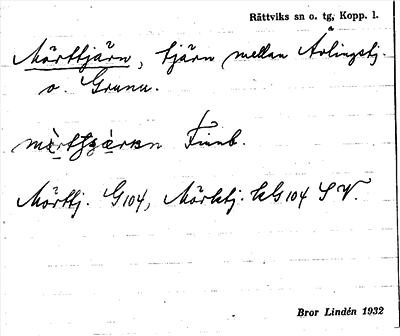 Rättviks sn o. tg, Kopp. l.
Mörttjärn, tjärn mellan Arlingstj.
o. Grunu.
Finnb.
Mörttj. G104, Mörktj. kG104 SV.
Bror Lindén 1932